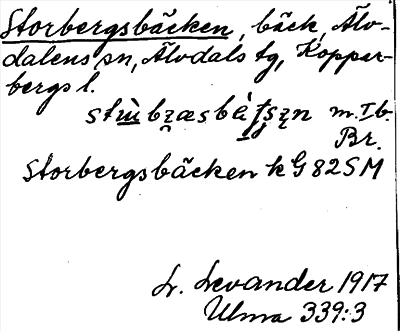 Storbergsbäcken, bäck, Älv-
dalens sn, Älvdals tg, Koppar-
bergs l.
m. Ib.
Br.
Storbergsbäcken k G 82 SM
L. Levander 1917
Ulma 339:3